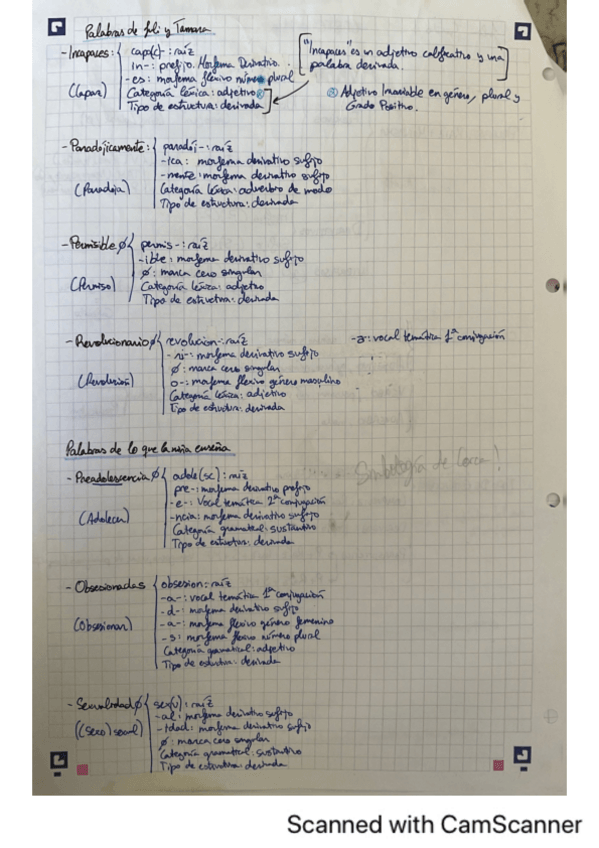 Palabras de Juli y Tamara
- Incapaces: { capa(c) : raíz
in- : prefijo. Morfema Derivativo.
- es: morfema flexivo número plural
(Capaz) Categoría léxica: adjetivo
Tipo de estructura: derivada
["Incapaces" es un adjetivo calificativo y una
palabra derivada.]
Adjetivo Invariable en género, plural y
Grado Positivo.
- Paradójicamente: { paradój- : raíz
-ica: morfema derivativo sufijo
-mente: morfema derivativo sufijo
(Paradoja) Categoría léxica: adverbio de modo
Tipo de estructura: derivada
- Permisible Ø { permis- : raíz
-ible: morfema derivativo sufijo
Ø: marca cero singular
(Permiso) Categoría léxica: adjetivo
Tipo de estructura: derivada
- Revolucionario Ø { revolucion- : raíz
- ri-: morfema derivativo sufijo
Ø: marca cero singular
(Revolución) o-: morfema flexivo género masculino
Categoría léxica: adjetivo
Tipo de estructura: derivada
-a: vocal temática 1ª conjugación
Palabras de lo que la niña enseña
- Preadolescencia Ø { adole(sc) : raíz
pre-: morfema derivativo prefijo
-e-: Vocal temática 2ª conjugación
(Adolecer) -ncia: morfema derivativo sufijo
Categoría gramatical: sustantivo
Tipo de estructura: derivada
Simbología de Lorca!
- Obsesionadas { obsesion- : raíz
-a-: vocal temática 1ª conjugación
-d-: morfema derivativo sufijo
(Obsesionar) -a-: morfema flexivo género femenino
-s: morfema flexivo número plural
Categoría gramatical: adjetivo
Tipo de estructura: derivada
- Sexualidad Ø { sex(u) : raíz
-al: morfema derivativo sufijo
((Sexo) sexual) -idad: morfema derivativo sufijo
Ø: marca cero singular
Categoría gramatical: sustantivo
Tipo de estructura: derivada
Scanned with CamScanner